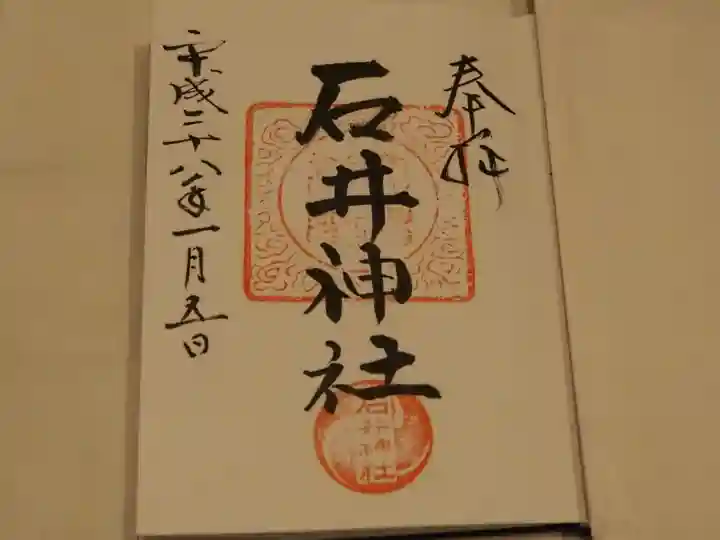 奉拝
石井神社
平成二十八年一月五日
石井神社